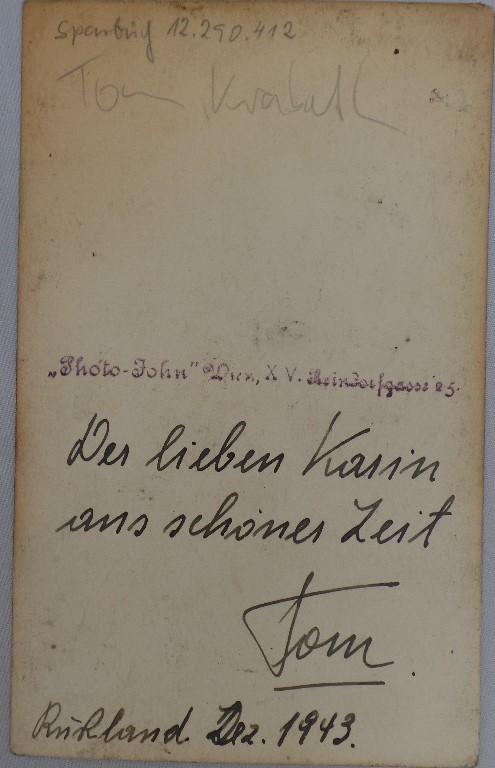 Sparbuch 12.290.412
Tom
„Photo-John" Wien, XV. Reindorfgasse 25.
Der lieben Karin
aus schöner Zeit
Tom
Rußland Dez. 1943.